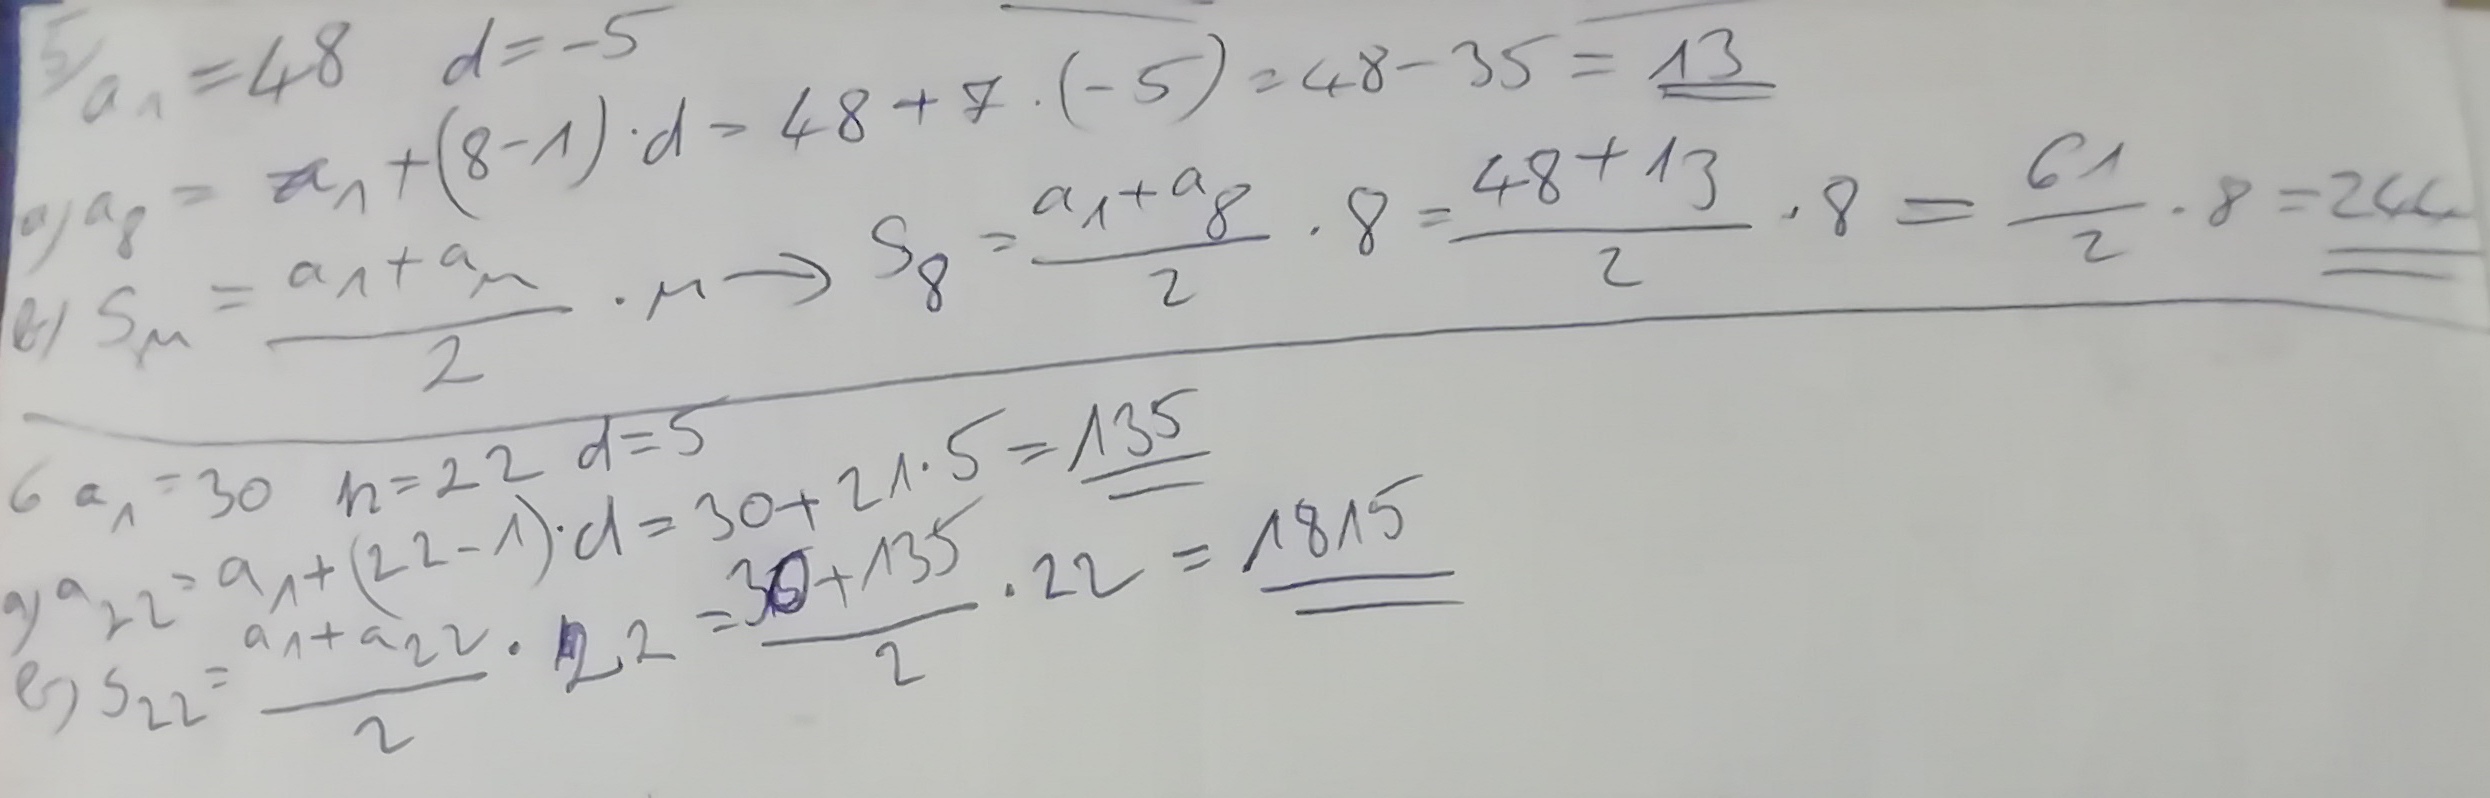 5/ a₁ = 48 d = -5
a) a₈ = a₁ + (8-1) · d = 48 + 7 · (-5) = 48 - 35 = 13
b) Sₙ = (a₁ + aₙ)/2 · n → S₈ = (a₁ + a₈)/2 · 8 = (48 + 13)/2 · 8 = 61/2 · 8 = 244
6 a₁ = 30 n = 22 d = 5
a) a₂₂ = a₁ + (22-1) · d = 30 + 21 · 5 = 135
b) S₂₂ = (a₁ + a₂₂)/2 · 22 = (30 + 135)/2 · 22 = 1815